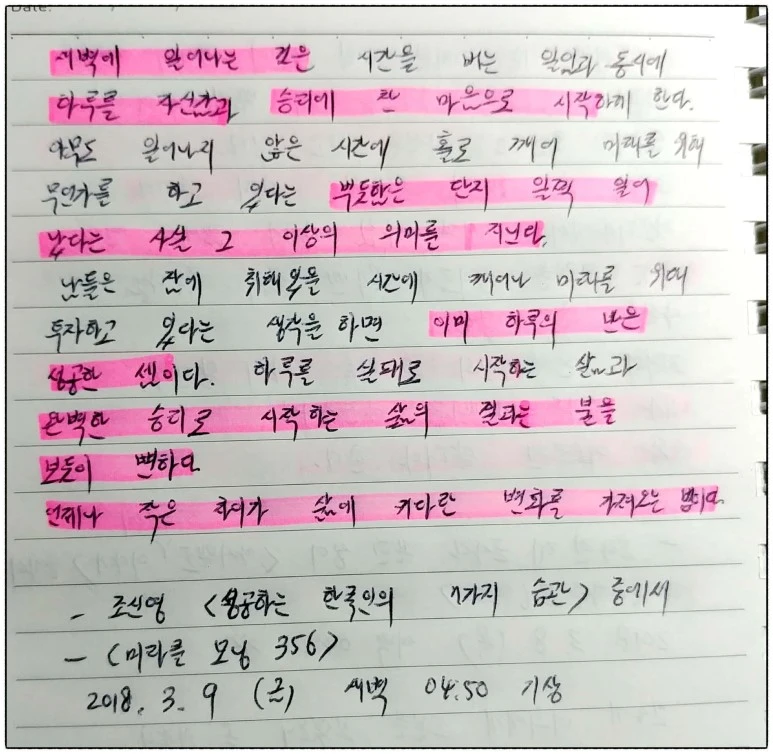 Date:
새벽에 일어나는 것은 시간을 버는 일임과 동시에
하루를 자신감과 승리에 찬 마음으로 시작하게 한다.
아무도 일어나지 않은 시간에 홀로 깨어 미래를 위해
무언가를 하고 있다는 뿌듯함은 단지 일찍 일어
났다는 사실 그 이상의 의미를 지닌다.
남들은 잠에 취해있을 시간에 깨어나 미래를 위해
투자하고 있다는 생각을 하면 이미 하루의 반은
성공한 셈이다. 하루를 실패로 시작하는 삶과
완벽한 승리로 시작하는 삶의 결과는 불을
보듯이 뻔하다
언제나 작은 차이가 삶에 커다란 변화를 가져오는 법이다.
- 조신영 <성공하는 한국인의 7가지 습관> 중에서
- <미라클 모닝 356>
2018. 3. 9 (금) 새벽 04:50 기상